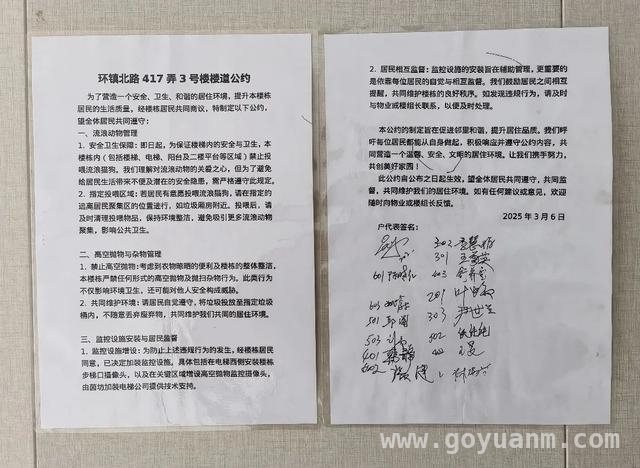 环镇北路 417 弄 3 号楼楼道公约
为了营造一个安全、卫生、和谐的居住环境，提升本楼栋
居民的生活质量，经楼栋居民共同商议，特制定以下公约，
望全体居民共同遵守：
一、流浪动物管理
1. 安全卫生保障：即日起，为保证楼梯内的安全与卫生，本
楼栋内（包括楼梯、电梯、阳台及二楼平台等区域）禁止投
喂流浪猫狗。我们理解对流浪动物的关爱之心，但为了避免
给居民生活带来不便及潜在的安全隐患，需严格遵守此规定。
2. 指定投喂区域：居民若有意愿投喂流浪猫狗，请在指定的
远离居民聚集区的位置进行，如垃圾厢房附近。投喂后，请
及时清理投喂物品，保持环境整洁，避免吸引更多流浪动物
聚集，影响公共卫生。
二、高空抛物与杂物管理
1. 禁止高空抛物：考虑到衣物晾晒的便利及楼栋的整体整洁，
本楼栋严禁任何形式的高空抛物及抛扫杂物行为。此类行为
不仅影响环境卫生，还可能对他人安全构成威胁。
2. 共同维护环境：请居民自觉遵守，将垃圾投放至指定垃圾
桶内，不随意丢弃废弃物，共同维护我们共同的居住环境。
三、监控设施安装与居民监督
1. 监控设施增设：为防止上述违规行为的发生，经楼栋居民
同意，已决定加装监控设施。具体包括在电梯西侧安装楼栋
步梯口摄像头，以及在关键区域增设高空抛物监控摄像头，
由茵坊加装电梯公司提供技术支持。
2. 居民相互监督：监控设施的安装旨在辅助管理，更重要的
是依靠每位居民的自觉与相互监督。我们鼓励居民之间相互
提醒，共同维护楼栋的良好秩序。如发现违规行为，请及时
与物业或楼组长联系，以便及时处理。
本公约的制定旨在促进邻里和谐，提升居住品质。我们呼
吁每位居民都能从自身做起，积极响应并遵守公约内容，共
同营造一个温馨、安全、文明的居住环境。让我们携手努力，
共创美好家园！
此公约自公布之日起生效，望全体居民共同遵守，共同监
督，共同维护我们的居住环境。如有任何建议或意见，欢迎
随时向物业或楼组长反馈。
2025 年 3 月 6 日
户代表签名：
302
301
601
403
603
201
501
303
503
502
401
402
602
www.goyuanm.com